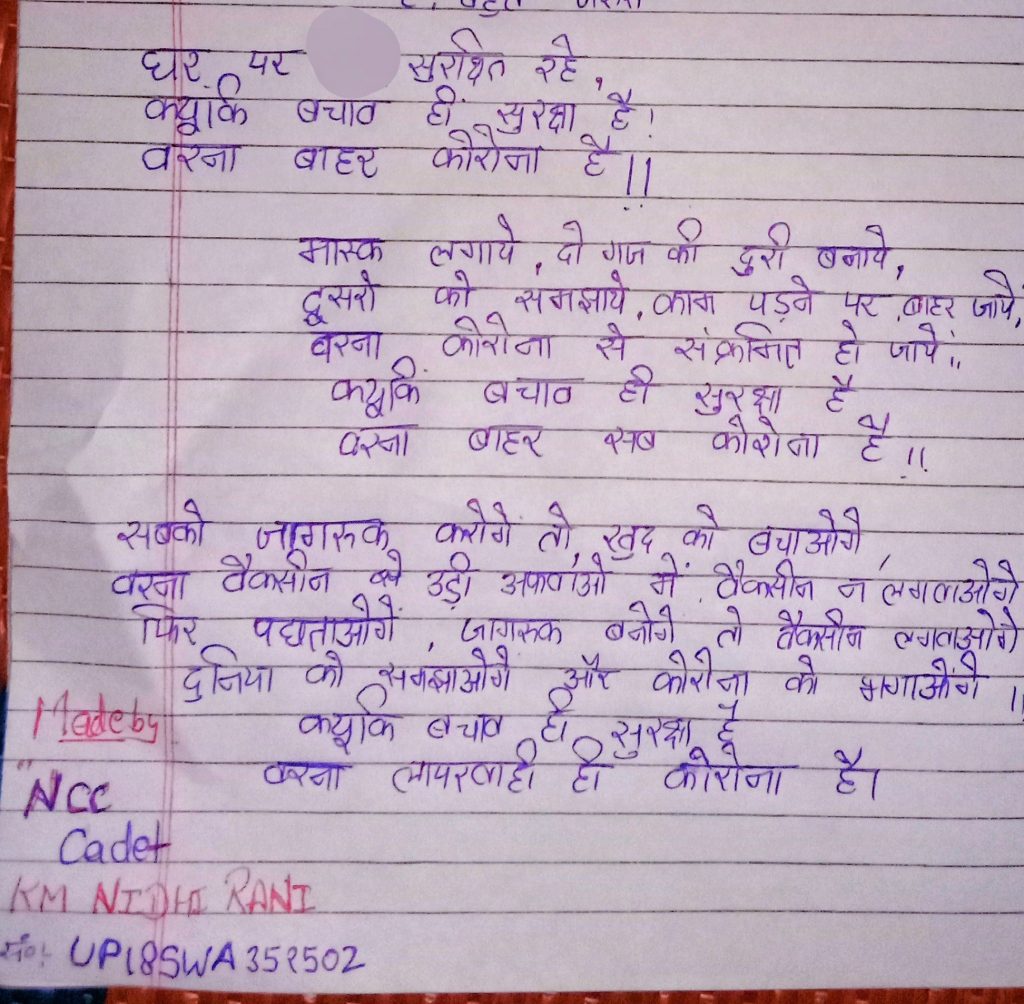 घर पर सुरक्षित रहे,
क्यूकि बचाव ही सुरक्षा है!
वरना बाहर कोरोना है!!
मास्क लगाये, दो गज की दुरी बनाये,
दूसरो को समझाये, काम पड़ने पर बाहर जाये,
वरना कोरोना से संक्रमित हो जाये!!
क्यूकिं बचाव ही सुरक्षा है
वरना बाहर सब कोरोना है!!
सबको जागरुक करोगे तो, खुद को बचाओगे,
वरना वैक्सीन से उड़ी अफवाओ में, वैक्सीन न लगवाओगे
फिर पछताओगे, जागरुक बनोगे तो वैक्सीन लगवाओगे
दुनिया को समझाओगे और कोरोना को भगाओगे!!
क्यूकि बचाव ही सुरक्षा है
वरना लापरवाही ही कोरोना है।
Made by
"NCC
Cadet
KM NIDHI RANI
UP18SWA352502